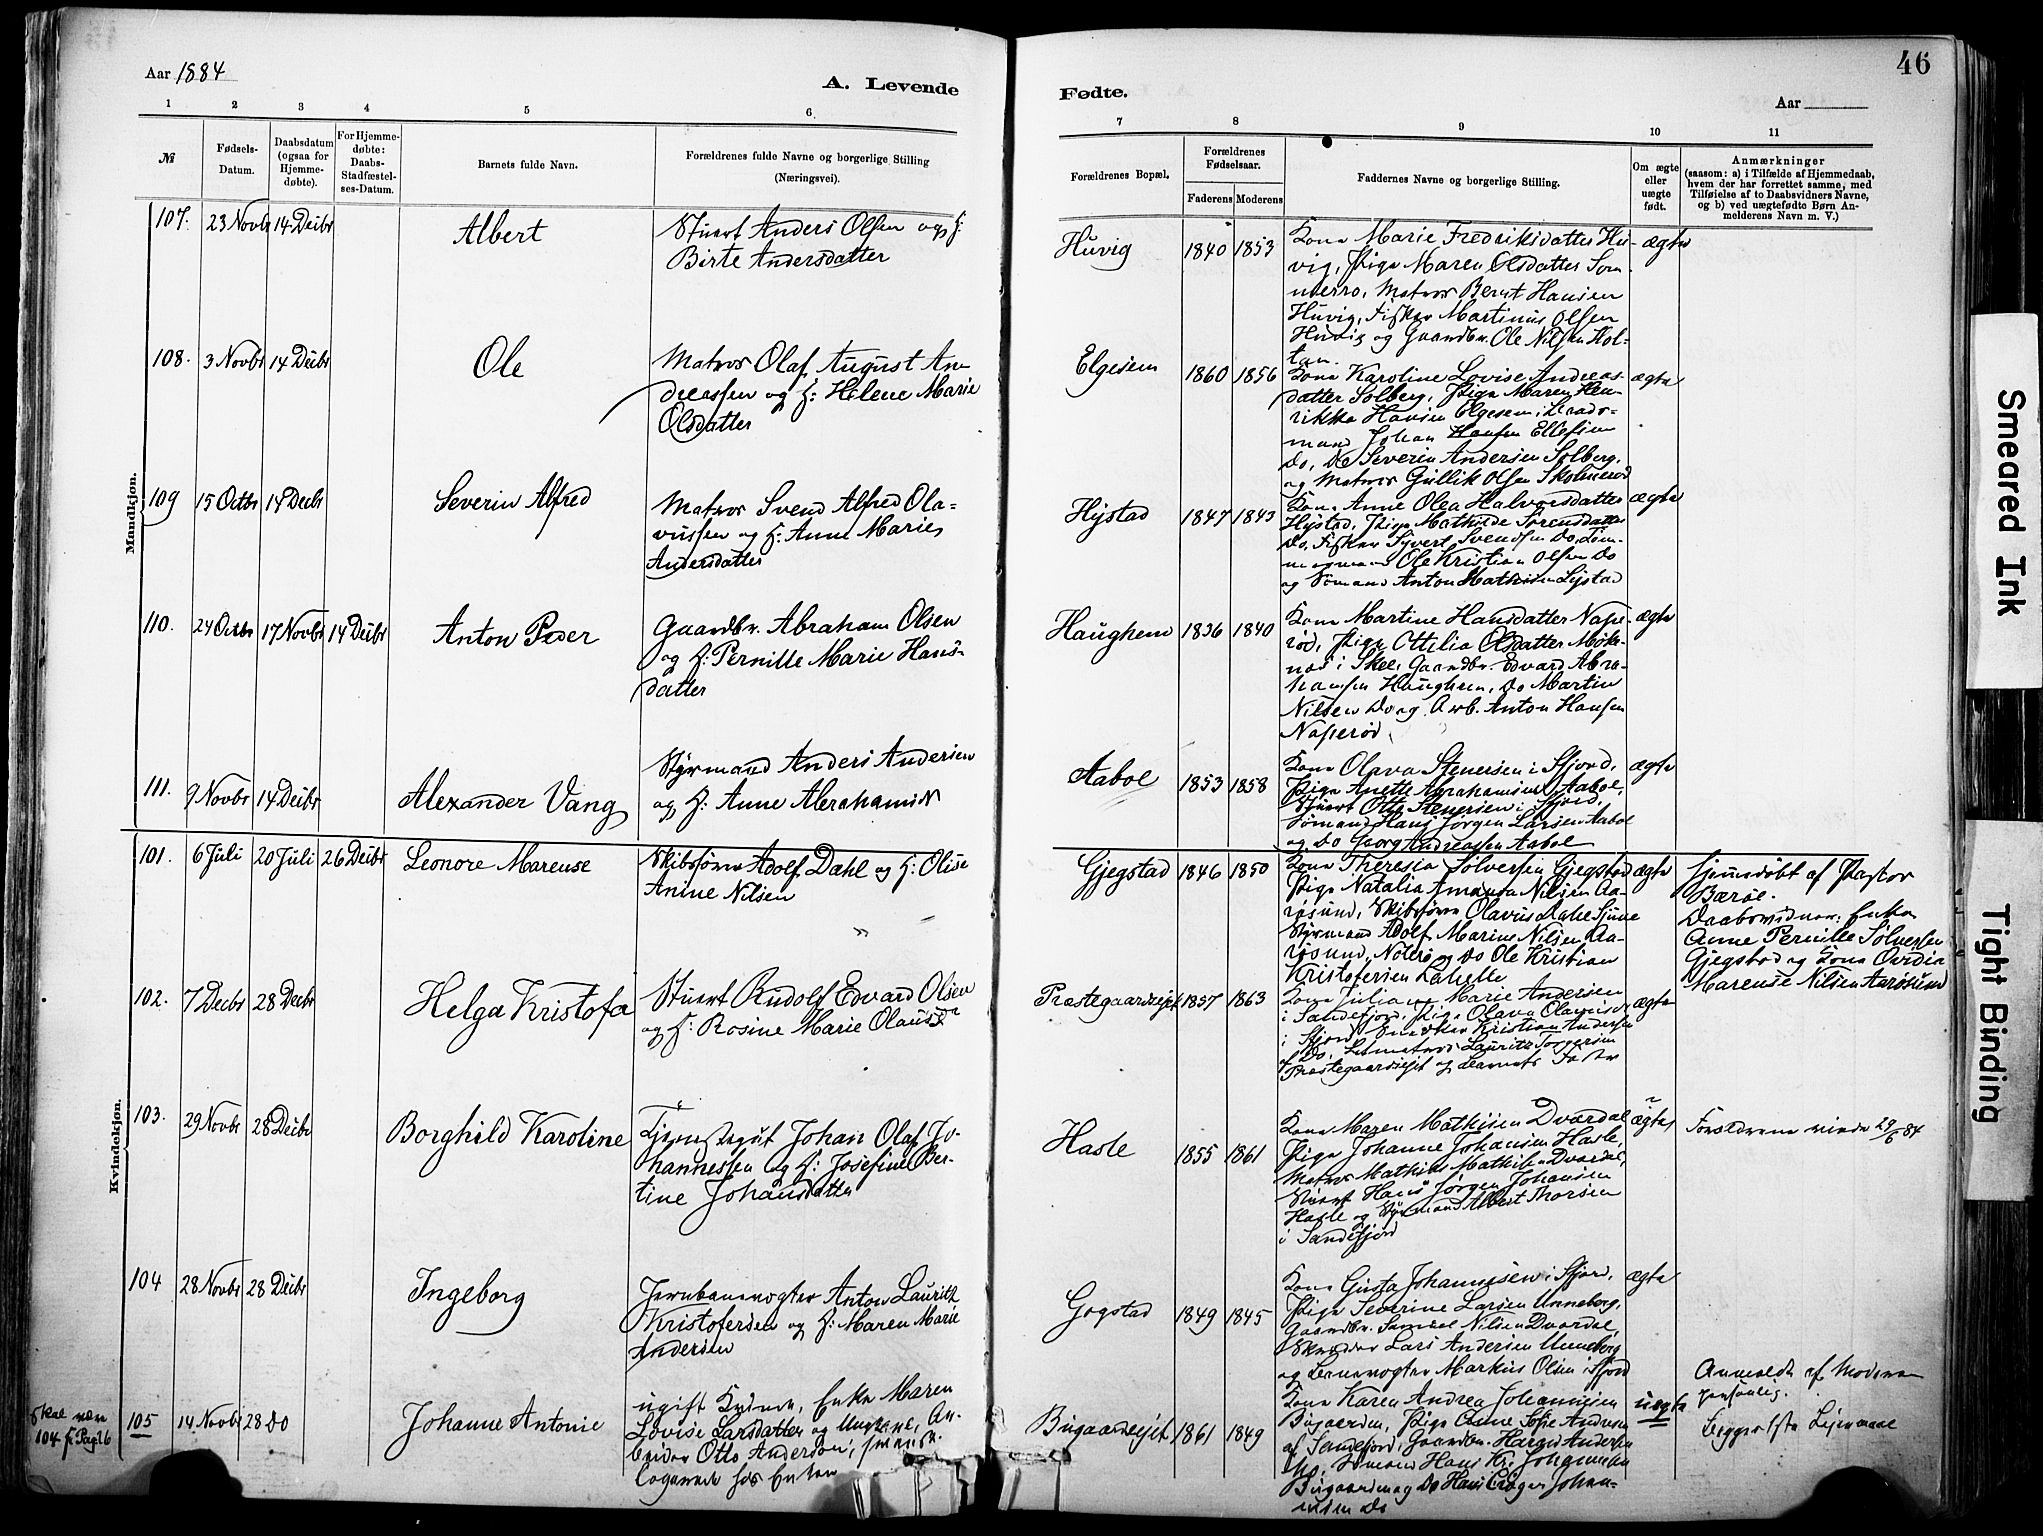 46
Aar 1884
A. Levende
Fødte.
Aar
1 2 3 4 5 6
7 8 9 10 11
№
Fødsels-Datum.
Daabsdatum (ogsaa for Hjemme-døbte).
For Hjemme-døbte: Daabs-Stadfæstel-ses-Datum.
Barnets fulde Navn.
Forældrenes fulde Navne og borgerlige Stilling
(Næringsvei).
Forældrenes Bopæl.
Forældrenes Fødselsaar.
Faderens Moderens
Faddernes Navne og borgerlige Stilling.
Om ægte eller uægte født.
Anmærkninger
(saasom: a) i Tilfælde af Hjemmedaab,
hvem der har forrettet samme, med
Tilføielse af to Daabsvidners Navne,
og b) ved uægtefødte Børn An-
melderens Navn m. V.)
Mandkjøn.
107. 23 Novbr 14 Decbr
Albert
Stuert Anders Olsen og h:
Birte Andersdatter
Huvig 1840 1853
Kone Marie Fredriksdatter Hu-
vig, Pige Maren Olsdatter Som
merro, Matros Bernt Hansen
Huvig, Fisker Martinus Olsen
Huvig og Gaardbr. Ole Nilsen Hol-
tan.
ægte
108. 3 Novbr 14 Decbr
Ole
Matros Olaf August An-
dreassen og h: Helene Marie
Olsdatter
Elgesem 1860 1856
Kone Karoline Lovise Andreas-
datter Solberg, Pige Maren Hen-
rikka Hansen Elgesem,
mand Johan Hansen
Do, Do Severin Andersen Solberg,
og Matros Gullik Olsen
ægte
109 15 Octbr 14 Decbr
Severin Alfred
Matros Svend Alfred Ola-
vussen og h: Anne Marie
Andersdatter
Hystad 1847 1843
Kone Anne Olea Halvorsdatter
Hystad, Pige Mathilde Sørensdatter
Do, Fisker Syvert Svendsen Do,
Ole Kristian Olsen Do
og Sømand Anton Mathisen
ægte
110. 24 Octbr 17 Novbr 14 Decbr
Anton Peder
Gaardbr. Abraham Olsen
og h: Pernille Marie Hans-
datter
Haughem 1836 1840
Kone Martine Hansdatter Nape-
rød, Pige Ottilia Olsdatter
i Skee, Gaardbr. Edvard Abra-
hamsen Haughem, Do Martin
Nilsen Do og Arb. Anton Hansen
Naperød
ægte
111. 9 Novbr 14 Decbr
Alexander Vang
Styrmand Anders Andersen
og h: Anne Abrahamsen
Aabol 1853 1858
Kone Olava Stenersen i Sfjord,
Pige Anette Abrahamsen Aabol,
Stuert Otto Stenersen i Sfjord,
Sømand Hans Jørgen Larsen Aabol
og Do Georg Andreassen Aabol
ægte
Kvindekjøn.
101. 6 Juli 20 Juli 26 Decbr
Leonore Marense
Skibsfører Adolf Dahl og h: Olise
Anine Nilsen
Gjegstad 1846 1850
Kone Theresia Sølversen Gjegstad
Pige Natalia Amanda Nilsen Aa-
røsund, Skibsfører Olavus Dahl
Styrmand Adolf Marine Nilsen Aa-
røsund, Nøterø og Do Ole Kristian
Kristofersen
ægte
Hjemmedøbt af Pastor
Bærøe.
Daabsvidner: Enke
Anne Pernille Sølversen
Gjegstad og Kone Ovidia
Marense Nilsen Aarøsund
102. 7 Decbr 28 Decbr
Helga Kristofa
Stuert Rudolf Edvard Olsen
og h: Rosine Marie
Præstegaardsejet 1857 1863
Kone Julia Marie Andersen
i Sandefjord, Pige Olava
i Sfjord, Kristian Andersen
Do, Laurits Torgersen
Præstegaardsejet og Barnets Fader
ægte
103. 29 Novbr 28 Decbr
Borghild Karoline
Tjenestegut Johan Olaf Jo-
hannessen og h: Josefine Ber-
tine Johansdatter
Hasle 1855 1861
Kone Maren Mathisen Dverdal,
Pige Johanne Johansen Hasle,
Matros Mathias Mathisen Dverdal,
Stuert Hans Jørgen Johansen
Hasle og Styrmand Albert Thorsen
i Sandefjord
ægte
Forældrene viede 29/6 84
104 28 Novbr 28 Decbr
Ingeborg
Jernbanevogter Anton Lauritz
Kristofersen og h: Maren Marie
Andersen
Gogstad 1849 1845
Kone Gusta Johannesen i Sfjord,
Pige Severine Larsen Unneberg,
Gaardbr. Samuel Nilsen Dverdal,
Skrædder Lars Andersen Unneberg
og Banevogter Markus Olsen i Sfjord
ægte
Skal være
104 f. Pag 26
105 14 Novbr 28 Do
Johanne Antonie
ugift Kvinde, Enke Maren
Lovise Larsdatter og Ungkarl, Ar-
beider Otto Andersen, svensk.
Logerende hos Enken
Bugaardsejet 1861 1849
Kone Karen Andrea Johannesen
Bugaarden, Pige Anne Sofie Andersen
af Sandefjord, Gaardbr. Harald Andersen
Do, Sømand Hans Kr. Johannesen
Bugaarden og Do Hans Johan-
nesen Do
uægte
Anmeldt af Moderen
personlig.
Beggers 1ste Leiermaal
Smeared Ink
Tight Binding